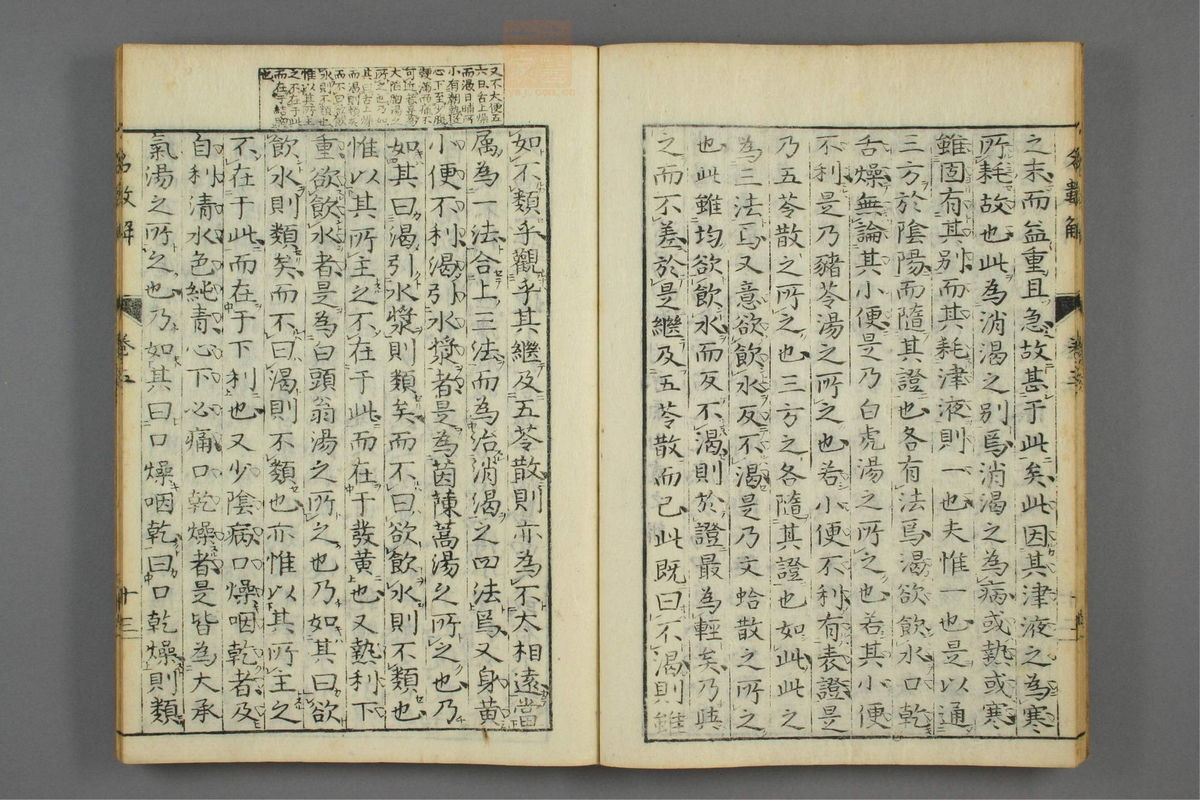 之末而益重且急故甚于此矣此因其津液之為寒
所耗故也此為消渴之別焉消渴之為病或熱或寒
雖固有其別而其耗津液則一也夫惟一也是以通
三方於陰陽而隨其證也各有法焉渴欲飲水口乾
舌燥無論其小便是乃白虎湯之所之也若其小便
不利是乃豬苓湯之所之也若小便不利有表證是
乃五苓散之所之也三方之各隨其證也如此此之
為三法焉又意欲飲水反不渴是乃文蛤散之所之
也此雖均欲飲水而反不渴則於證最為輕矣乃與
之而不差於是繼及五苓散而已此既曰不渴則雖
如不類乎觀乎其繼及五苓散則亦為不太相遠當
属為一法合上三法而為治消渴之四法焉又身黄
小便不利渴引水漿者是為茵蔯蒿湯之所之也乃
如其曰渴引水漿則類矣而不曰欲飲水則不類也
惟以其所主之不在于此而在于發黄也又熱利下
重欲飲水者是為白頭翁湯之所之也乃如其曰欲
飲水則類矣而不曰渴則不類也亦惟以其所主之
不在于此而在于下利也又少陰病口燥咽乾者及
自利清水色純青心下必痛口乾燥者是皆為大承
氣湯之所之也乃如其曰口燥咽乾曰口乾燥則類
又不大便五
六日舌上燥
而渴日晡所
小有潮熱從
心下至少腹
鞕滿而痛不
可近者是為
大陷胸湯之
所之也乃如
其曰舌上燥
而渴則類矣
而不曰欲飲
水則不類也
惟以其所主
之不在于此
而在于結胸
也